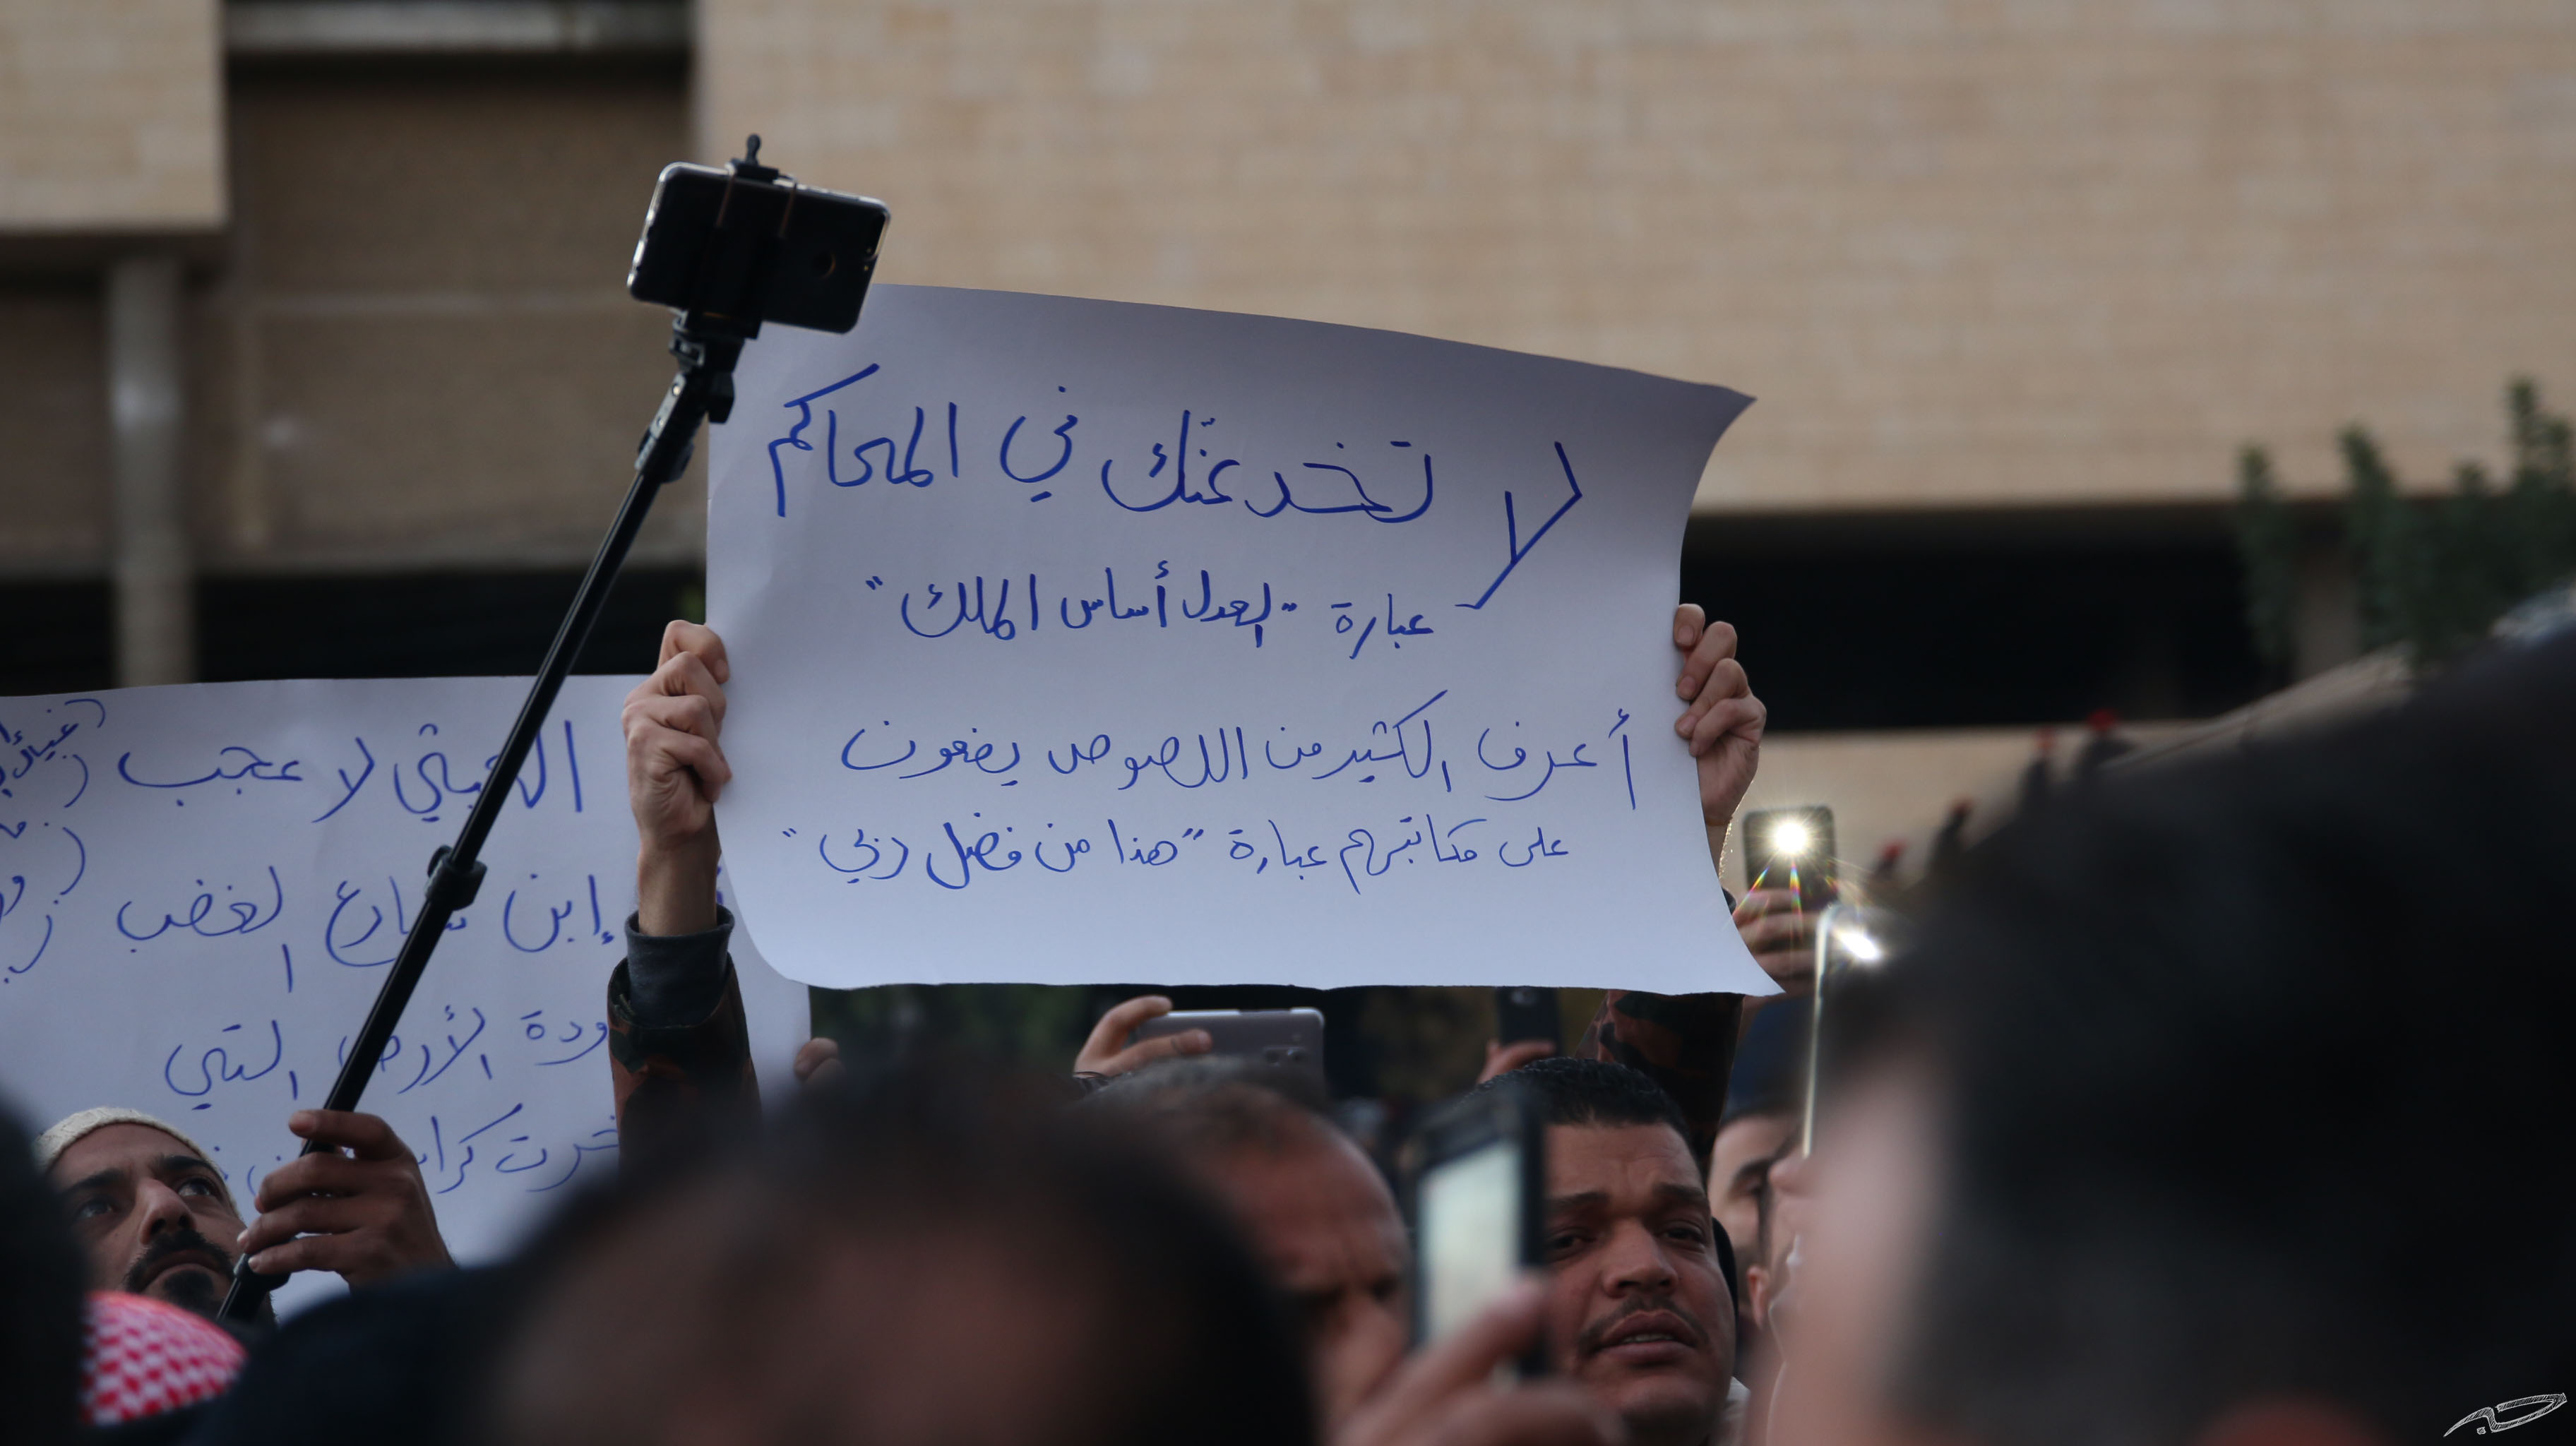 لا تخدعنّك في المحاكم
عبارة "العدل أساس الملك"
أعرف الكثير من اللصوص يضعون
على مكاتبهم عبارة "هذا من فضل ربي"
لا عجب
إبن شارع الغضب
الأرض التي